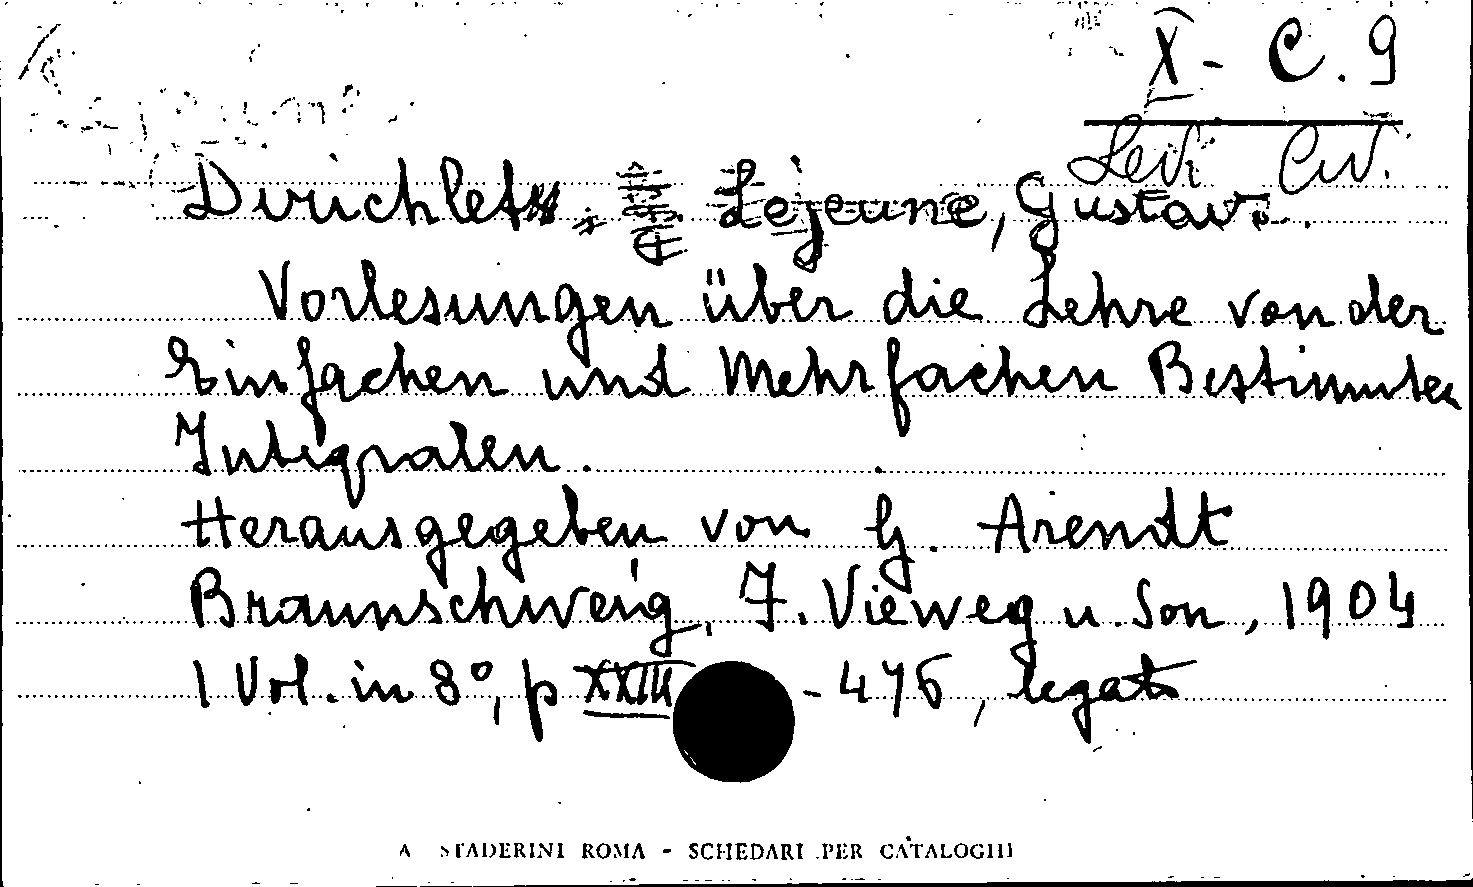 X - C. 9
Levi Civ.
Dirichlet, Lejeune, Gustav.
Vorlesungen über die Lehre von der
Einfachen und Mehrfachen Bestimmten
Integralen.
Herausgegeben von G. Arendt
Braunschweig, F. Vieweg u. Son, 1904
1 Vol. in 8°, p XXIII - 476, legato
A STADERINI ROMA - SCHEDARI PER CATALOGHI